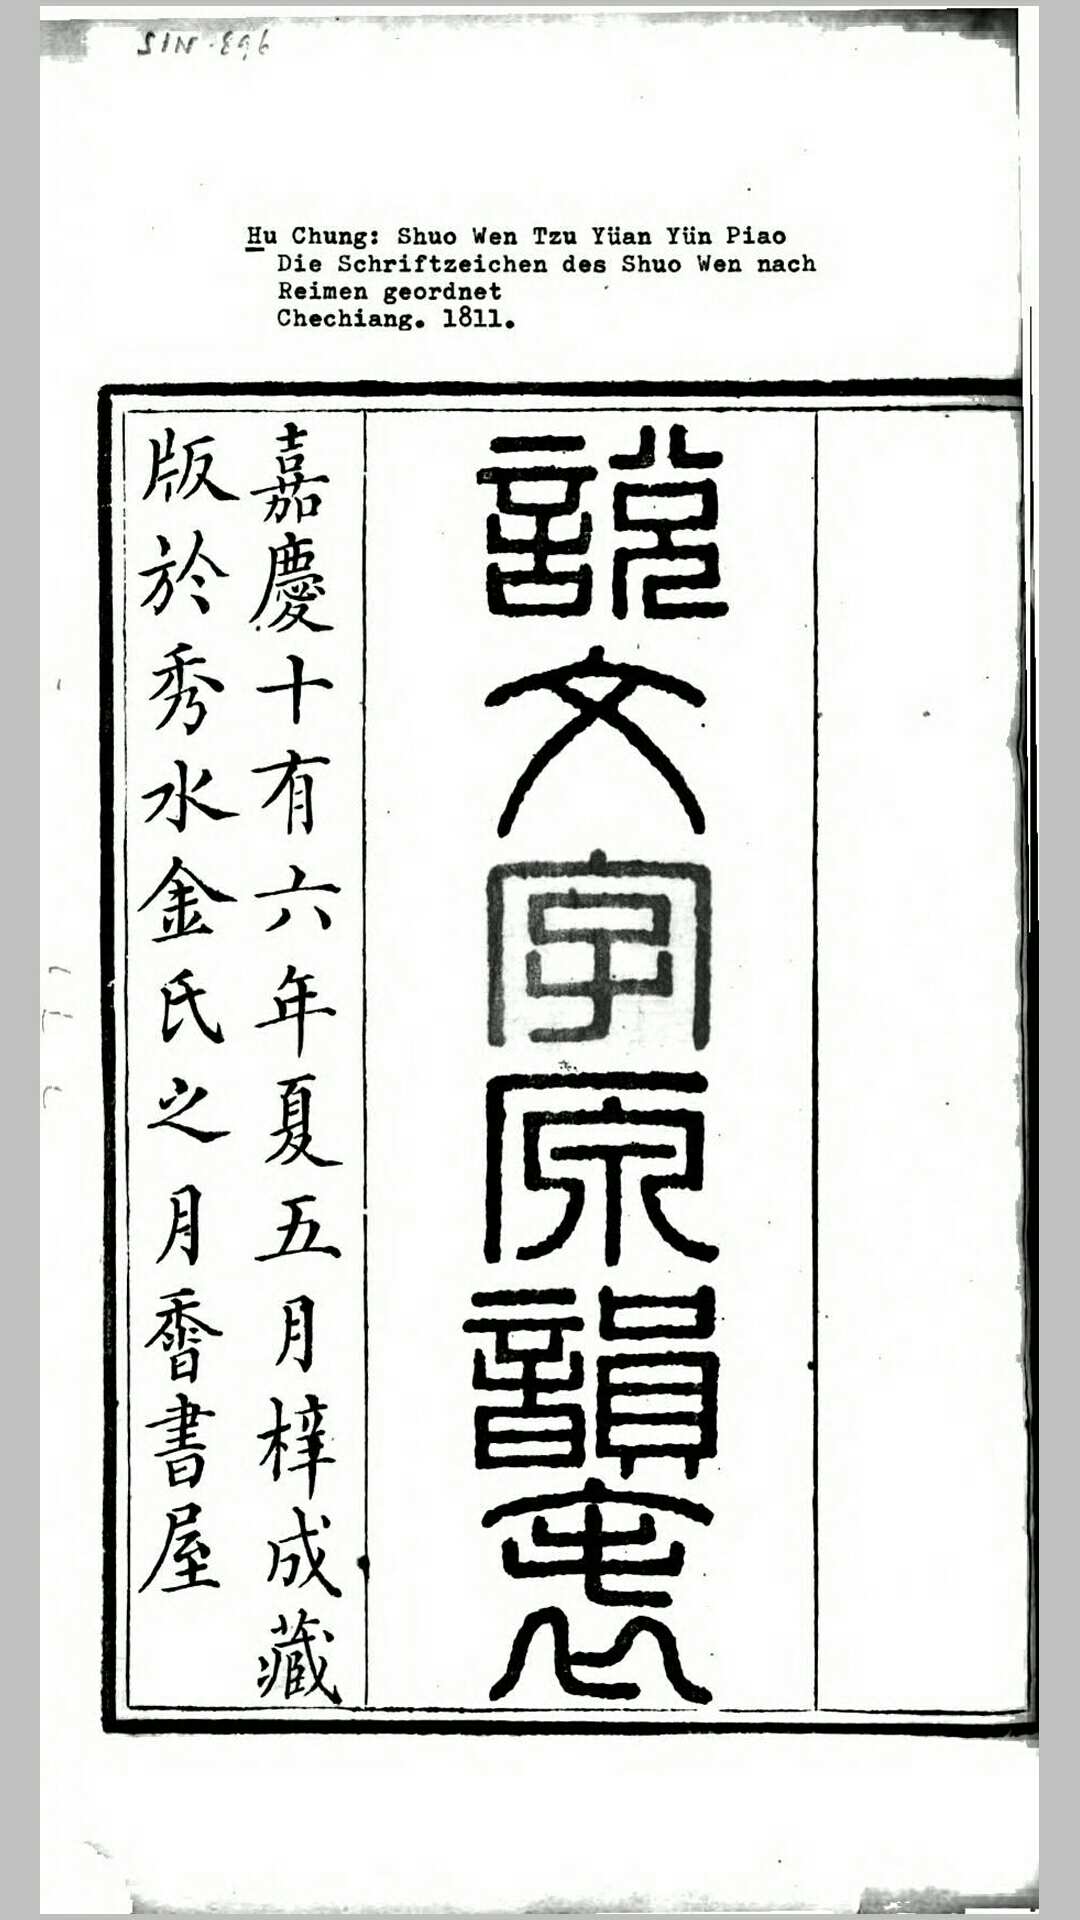 SIN·896
Hu Chung: Shuo Wen Tzu Yüan Yün Piao
Die Schriftzeichen des Shuo Wen nach
Reimen geordnet
Chechiang. 1811.
說文字原韻表
嘉慶十有六年夏五月梓成藏
版於秀水金氏之月香書屋